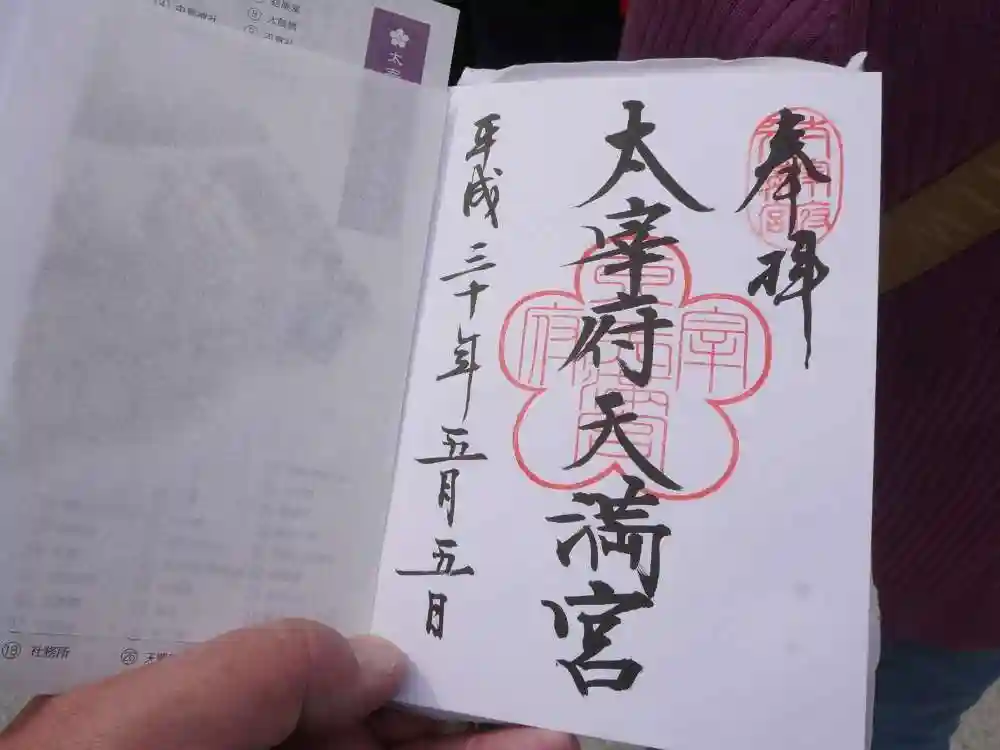 奉拝
太宰府天満宮
平成三十年五月五日
太宰府
⑲ 社務所
㉖